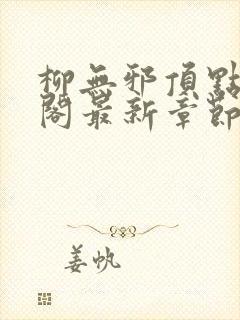 柳無邪頂點
閣最新章節
姜帆